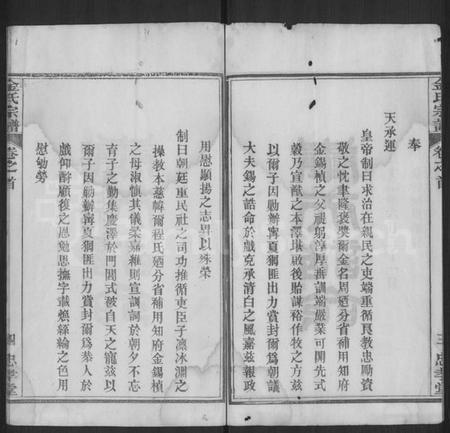 奉
天承運
皇帝制曰求治在親民之吏端重循良教忠勵資
敬之忱聿隆褒獎爾金名周迺分省補用知府
金錫楨之父禔躬淳厚垂訓端嚴業可開先式
穀乃宣猷之本澤堪啟後貽謀裕作牧之方茲
以爾子因勷辦賓夏獨匪出力賞封爾為朝議
大夫錫之誥命於戲克承清白之風嘉茲報政
用慰顯揚之志畀以殊榮
制曰朝廷重民社之司功推循吏臣子凜冰淵之
操教本慈幃爾程氏迺分省補用知府金錫楨
之母淑慎其儀柔嘉維則宣訓詞於朝夕不忘
育子之勤集慶澤於門閭式被自天之寵茲以
爾子因勷辦甯夏獨匪出力賞封爾為恭人於
戲仰酬顧復之恩勉思撫字載煥絲綸之色用
慰劬勞
金氏宗譜
卷之首
三
忠孝堂
金氏宗譜
卷之首
四
忠孝堂